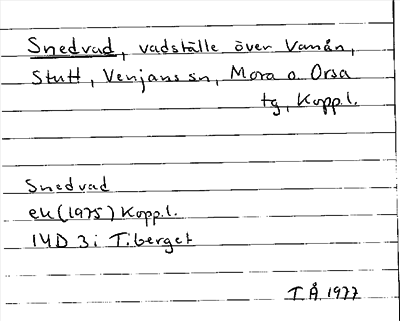 Snedvad, vadställe över Vanån,
Stutt, Venjans sn, Mora o. Orsa
tg, Kopp.l.
Snedvad
ek (1975) Kopp.l.
14D 3i Tiberget
T Å 1977